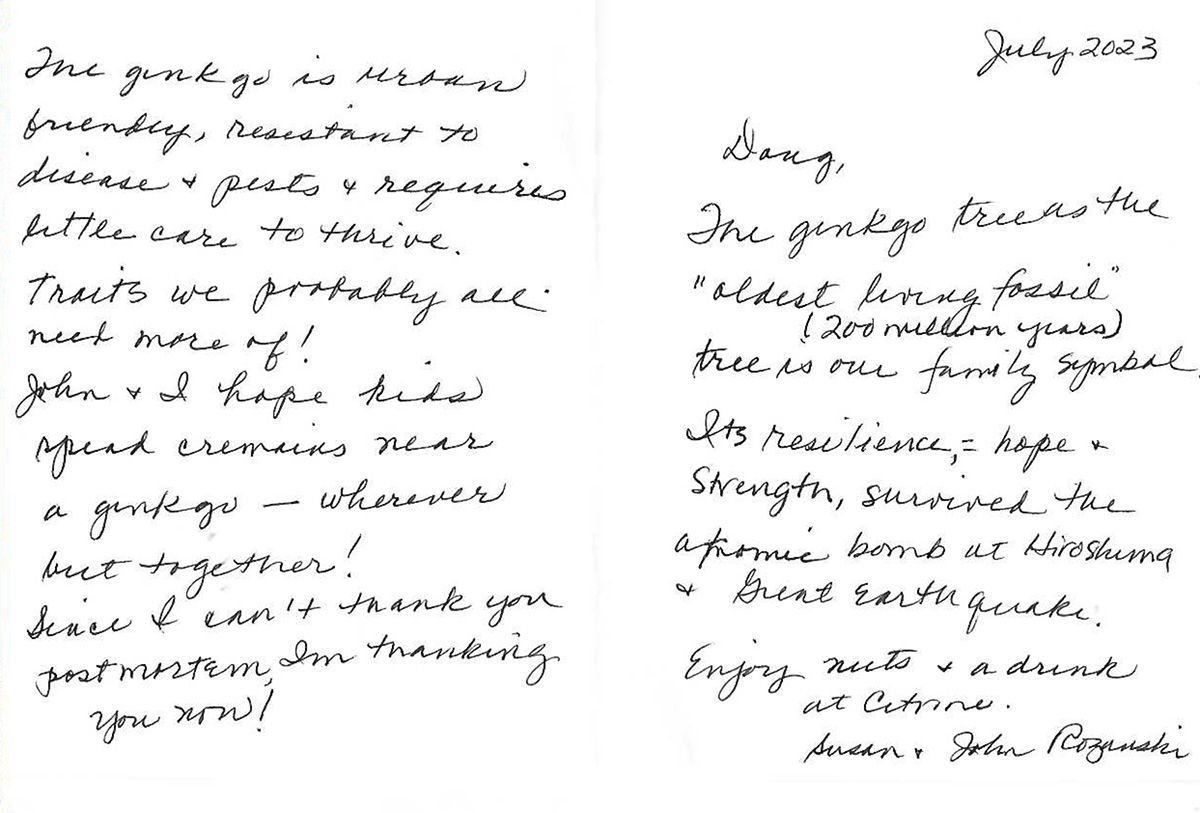 The ginkgo is urban
friendly, resistant to
disease + pests + requires
little care to thrive.
Traits we probably all
need more of!
John + I hope kids
spread cremains near
a ginkgo — wherever
but together!
Since I can't thank you
post mortem, I'm thanking
you now!
July 2023
Doug,
The ginkgo tree as the
"oldest living fossil"
(200 million years)
tree is our family symbol.
Its resilience, = hope +
Strength, survived the
atomic bomb at Hiroshima
+ Great Earthquake.
Enjoy nuts + a drink
at Citrine.
Susan + John Rozanski